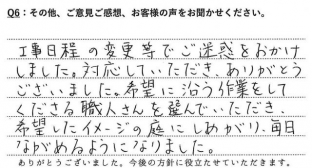 Q6：その他、ご意見ご感想、お客様の声をお聞かせください。
工事日程の変更等でご迷惑をおかけ
しました。対応していただき、ありがとう
ございました。希望に沿う作業をして
くださる職人さんを選んでいただき
希望したイメージの庭にしあがり、毎日
ながめるようになりました。
ありがとうございました。今後の方針に役立たせていただきます。